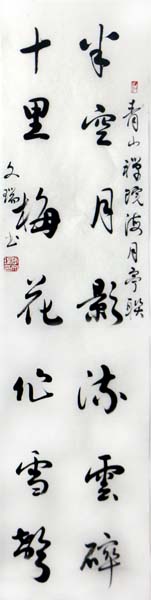 青山禪院海月亭聯
半空月影流雲碎
十里梅花作雪聲
文瑞书